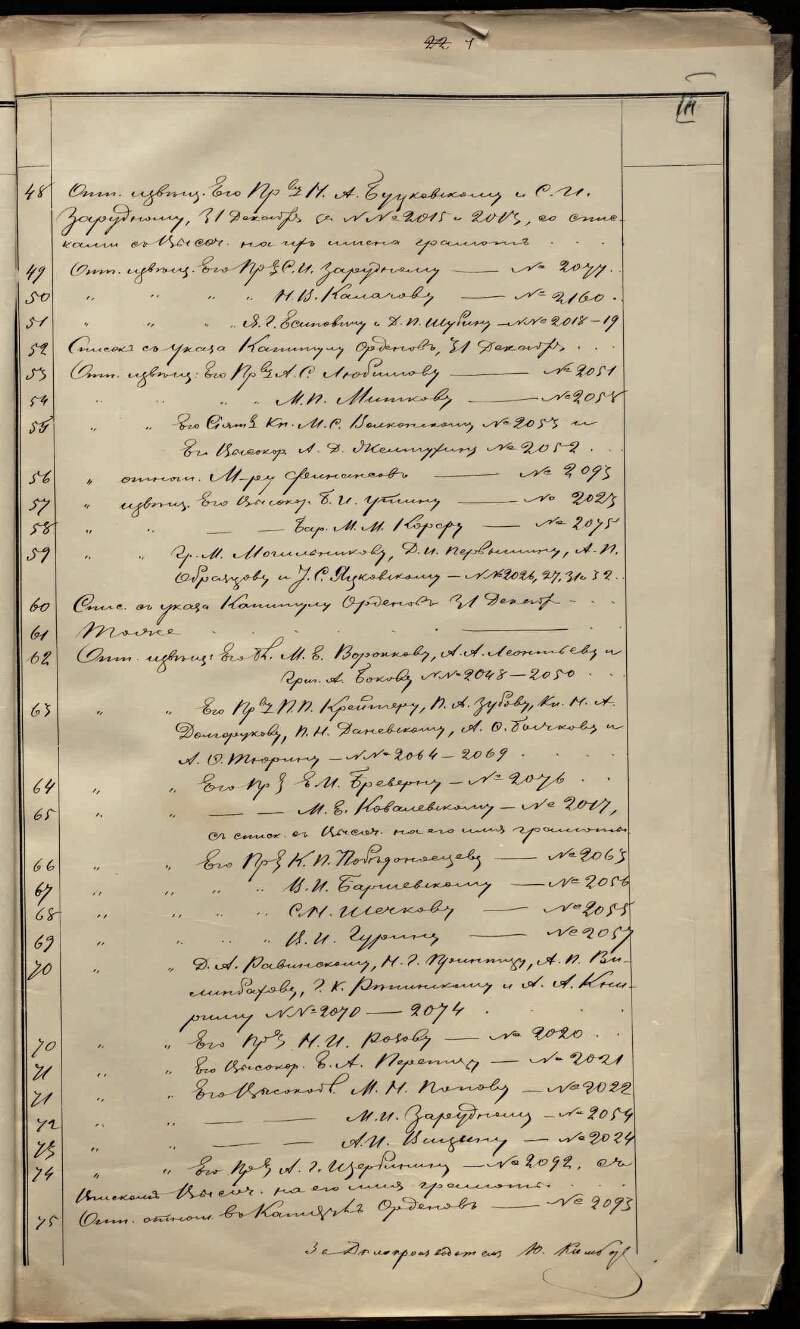 22 1
III
48 Отп. извѣщ. Его Пр-ву Н. А. Буцковскому и С. И.
Зарудному, 31 Декабр за №№ 2015 и 2013, со спис-
ками съ Высоч. на ихъ имена грамотъ . . .
49 Отп. извѣщ. Его Пр-ву С. И. Зарудному — № 2077 . .
50 " " " " Н. В. Калачову — № 2160 .
51 " " " " Я. Г. Есиповичу и Д. П. Шубину — №№ 2018 - 19
52 Списокъ съ указа Капитулу Орденовъ, 31 Декабр . . .
53 Отп. извѣщ. Его Пр-ву А. С. Любимову — № 2051
54 " " " " М. П. Миткову — № 2058
55 " " Его Сіят-ву Кн. М. С. Волконскому № 2053 и
Его Высокор. А. Д. Желтухину № 2052 . . .
56 " отнош. М-ру Финансовъ — № 2093
57 " извѣщ. Его Высокор. Б. И. Утину — № 2023
58 " " — — Бар. М. М. Корфу — № 2075
59 " " Гр. М. Могильникову, Д. И. Первышину, А. П.
Образцову и Яцковскому — №№ 2026, 27, 31 и 32 . .
60 Спис. съ указа Капитулу Орденовъ 31 Декабр . . .
61 Тоже . . . —
62 Отп. извѣщ. Его М. Е. Воронкову, А. А. Леонтьеву и
Григ. А. Бокову №№ 2048 — 2050 . . .
63 " " Его Пр-ву П. П. Крейтеру, П. А. Зубову, Кн. Н. А.
Долгорукову, П. Н. Даневскому, А. Ѳ. Бычкову и
А. Ѳ. Тюрину — №№ 2064 — 2069 . . . .
64 " " Его Пр-ву Е. И. Бреверну — № 2076 . .
65 " " — — М. Е. Ковалевскому — № 2017,
съ списк. съ Высоч. на его имя грамоты
66 " " Его Пр-ву К. П. Побѣдоносцеву — № 2063
67 " " " " В. И. Баршевскому — № 2056
68 " " " " С. Н. Шечкову — № 2055
69 " " " " В. И. Гурину — № 2057
70 " " Д. А. Равинскому, Н. Г. Принтцу, А. П. Ви-
линбахову, Г. К. Рѣпинскому и А. А. Кни-
риму №№ 2070 — 2074 . . . .
70 " " Его Пр-ву Н. И. Розову — № 2020 . .
71 " " Его Высокор. Е. А. Перетцу — № 2021
71 " " Его Высокоб. М. Н. Попову — № 2022
72 " " — — М. И. Зарудному — № 2054
73 " " — — А. И. — № 2024
74 " " Его Пр-ву А. Г. Щербинину — № 2092, съ
спискомъ Высоч. на его имя грамоты . . .
75 Отп. отнош. въ Капитулъ Орденовъ — № 2093
За Дѣлопроизводителя Ю.